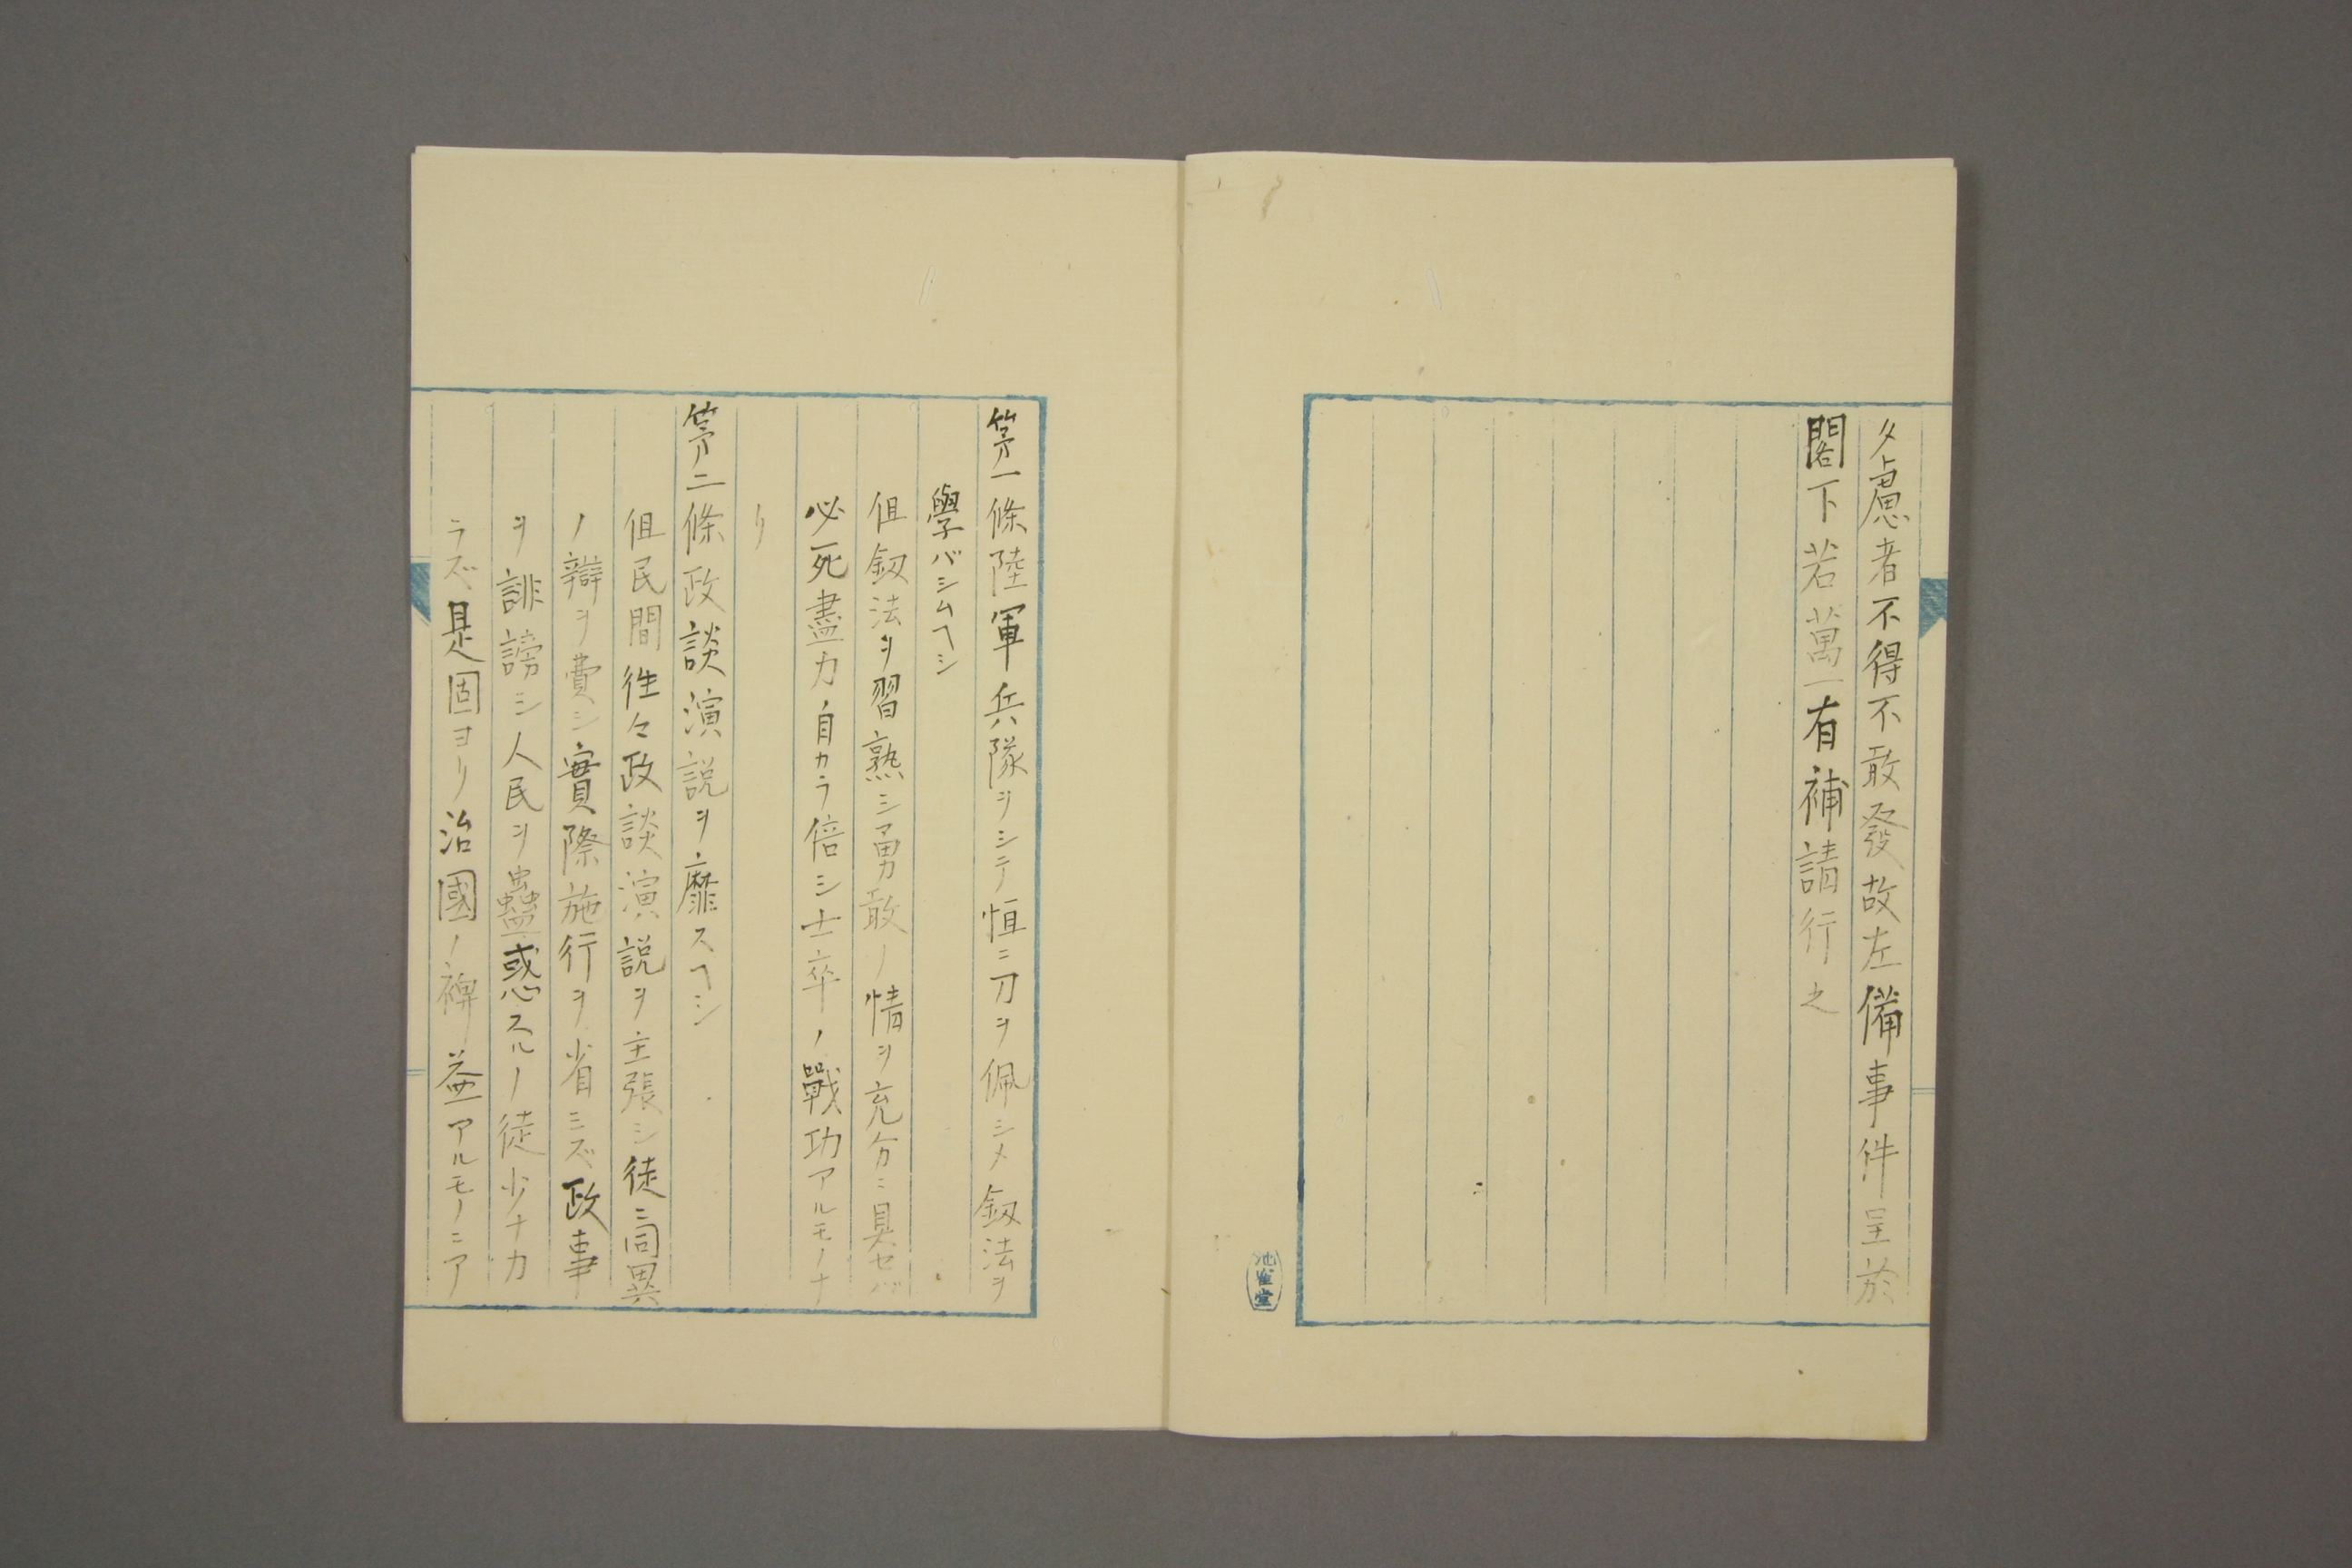 多慮者不得不敢發故左備事件呈於
閣下若萬一有補請行之
池雀堂
第一條陸軍兵隊ヲシテ恒ニ刀ヲ佩シメ釼法ヲ
學バシムヘシ
但釼法ヲ習熟シ勇敢ノ情ヲ充分ニ具セバ
必死盡力自カラ倍シ士卒ノ戰功アルモノナ
リ
第二條政談演説ヲ靡スヘシ
但民間徃々政談演説ヲ主張シ徒ニ同異
ノ辯ヲ費シ實際施行ヲ省ミズ政事
ヲ誹謗シ人民ヲ蠱惑スルノ徒少ナカ
ラズ是固ヨリ治國ノ裨益アルモノニア